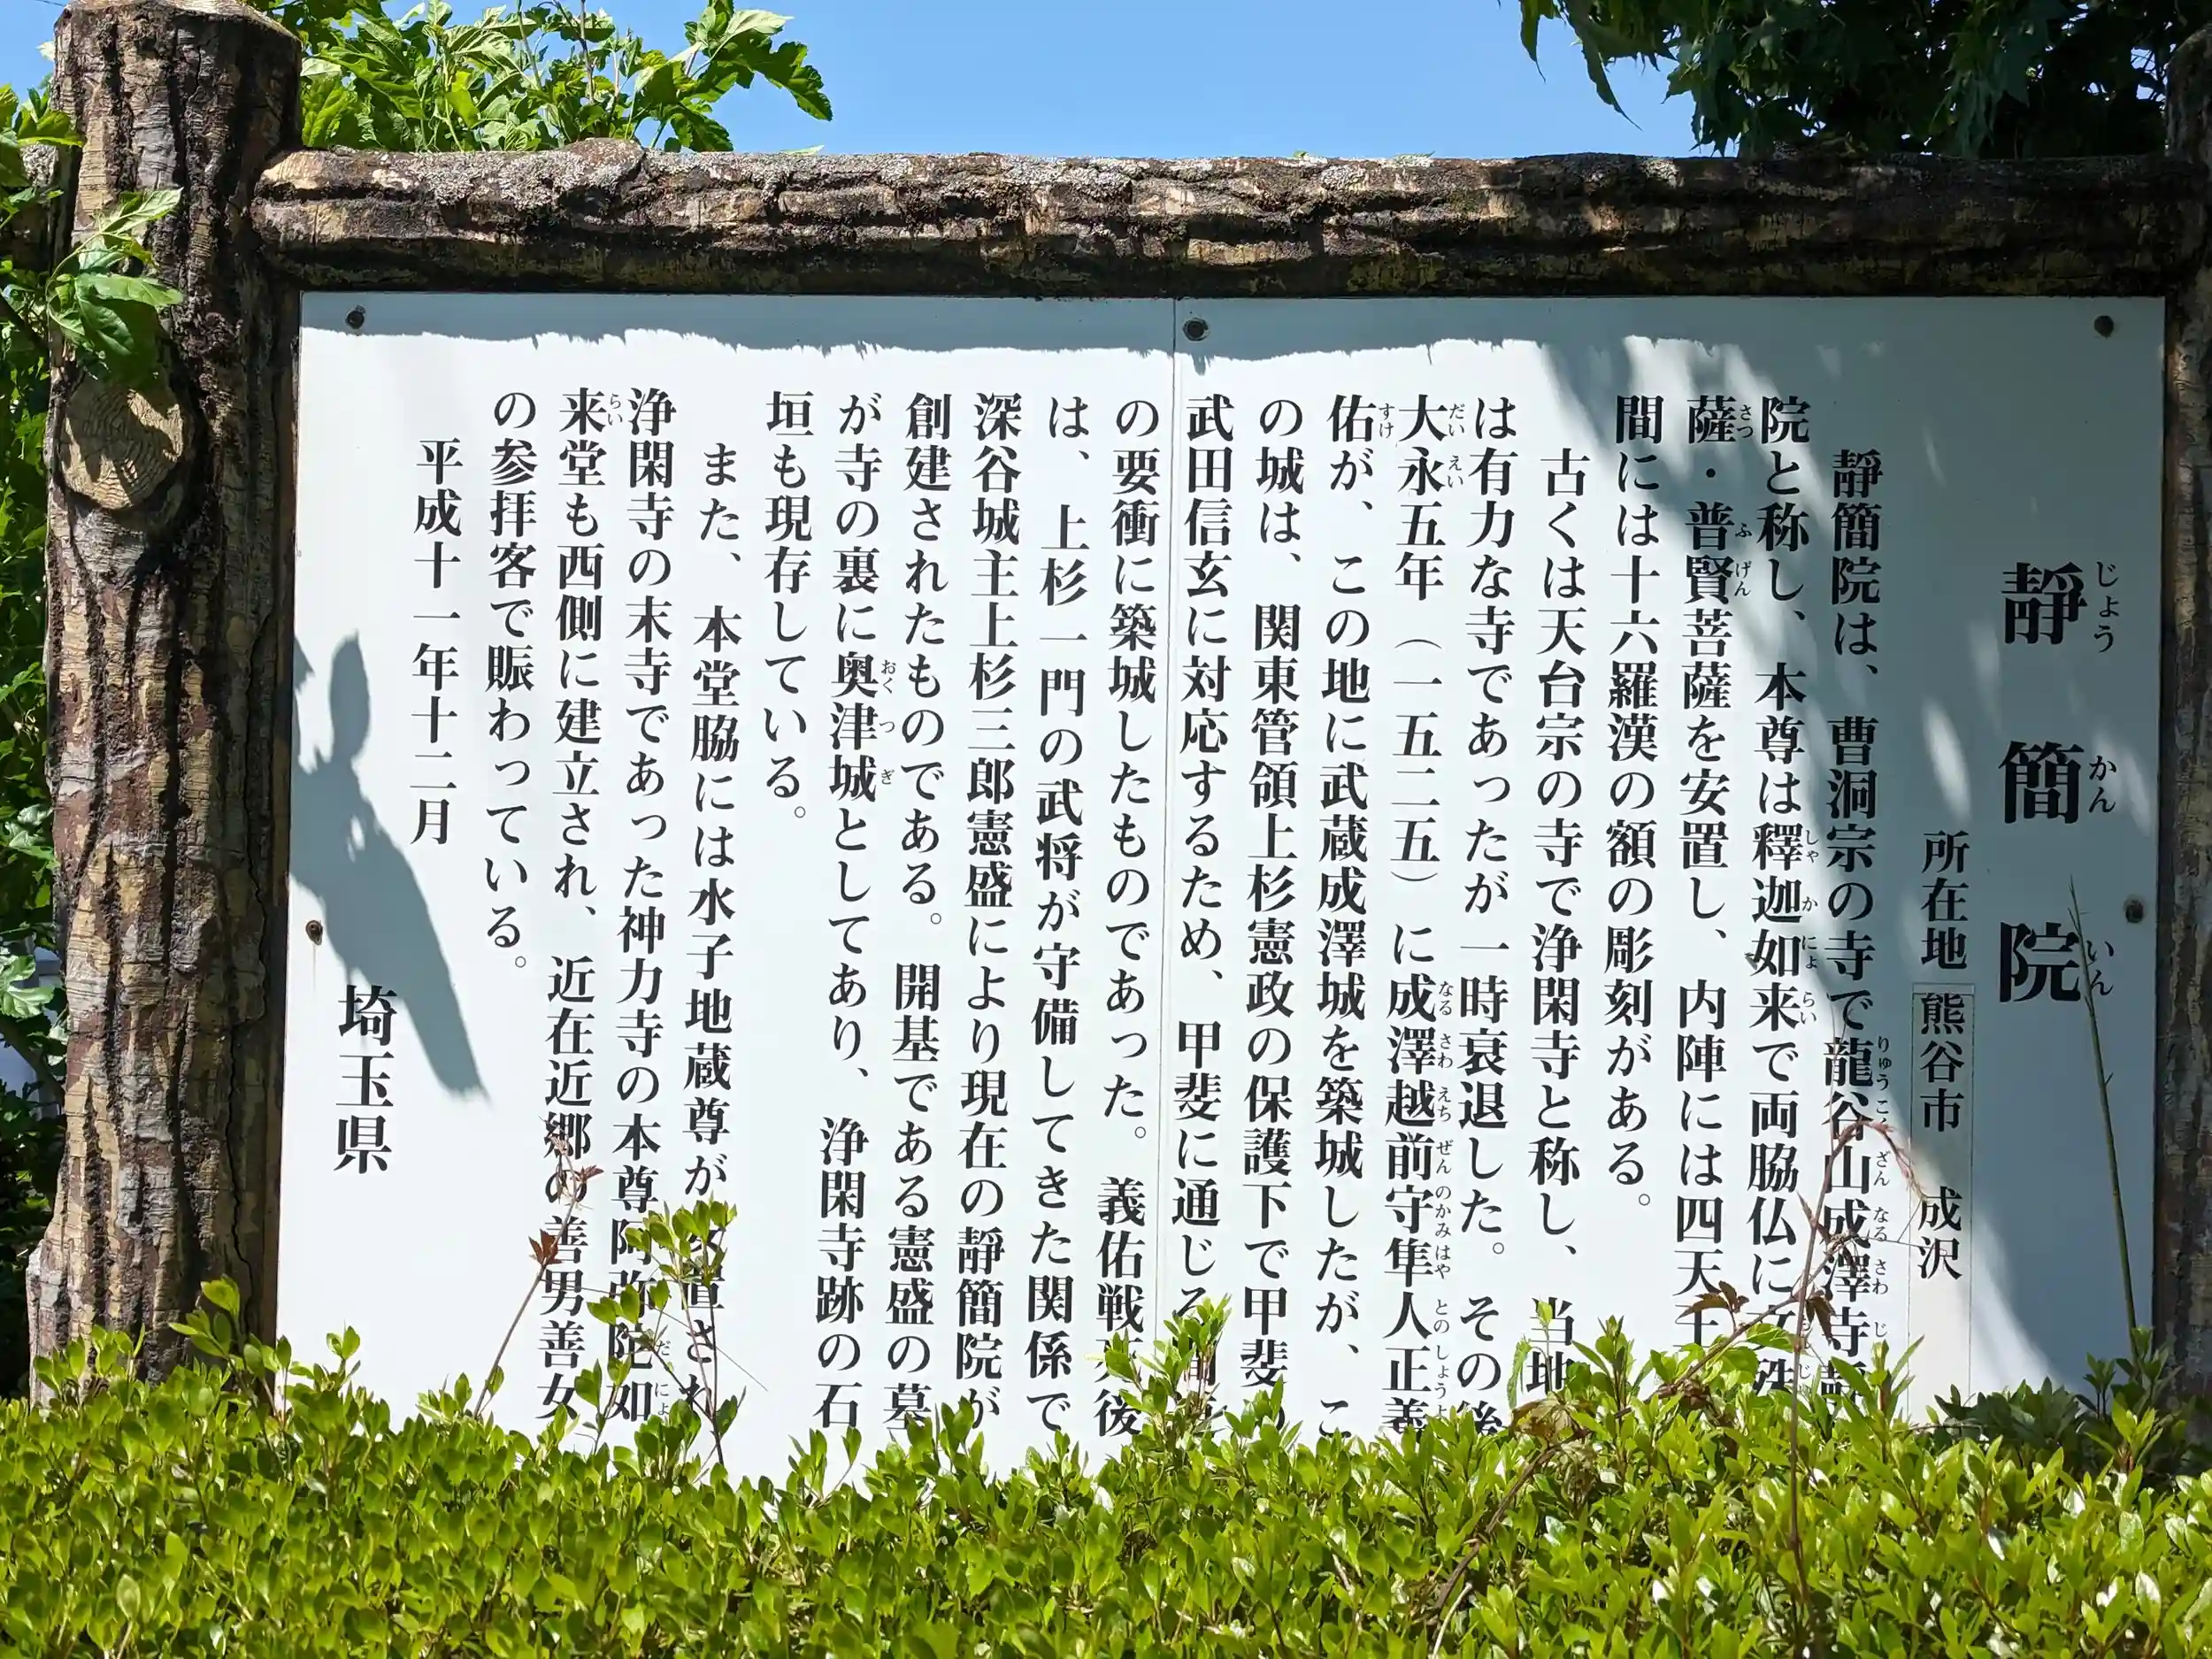 靜簡院
じょうかんいん
所在地 熊谷市 成沢
靜簡院は、曹洞宗の寺で龍谷山成澤寺靜
院と称し、本尊は釋迦如来で両脇仏に文殊
薩・普賢菩薩を安置し、内陣には四天王
間には十六羅漢の額の彫刻がある。
古くは天台宗の寺で浄閑寺と称し、当地
は有力な寺であったが一時衰退した。その後
大永五年（一五二五）に成澤越前守隼人正義
佑が、この地に武蔵成澤城を築城したが、こ
の城は、関東管領上杉憲政の保護下で甲斐の
武田信玄に対応するため、甲斐に通じる
の要衝に築城したものであった。義佑戦死後
は、上杉一門の武将が守備してきた関係で
深谷城主上杉三郎憲盛により現在の靜簡院が
創建されたものである。開基である憲盛の墓
が寺の裏に奥津城としてあり、浄閑寺跡の石
垣も現存している。
また、本堂脇には水子地蔵尊が安置され
浄閑寺の末寺であった神力寺の本尊阿弥陀如
来堂も西側に建立され、近在近郷の善男善女
の参拝客で賑わっている。
平成十一年十二月
埼玉県